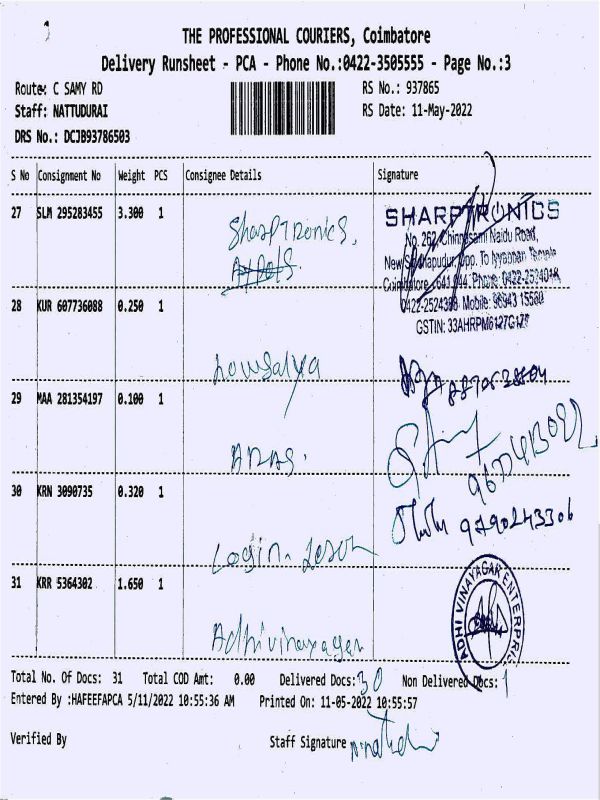 THE PROFESSIONAL COURIERS, Coimbatore
Delivery Runsheet - PCA - Phone No.:0422-3505555 - Page No.:3
Route: C SAMY RD
RS No.: 937865
Staff: NATTUDURAI
RS Date: 11-May-2022
DRS No.: DCJB93786503
S No Consignment No Weight PCS Consignee Details Signature
27 SLM 295283455 3.300 1
SharpTronics.
SHARPTRONICS
No. 262, Chinnasami Naidu Road,
Opp. To Iyyappan Temple
641 044. Phone:
Mobile: 98943 15580
GSTIN: 33AHRPM6127G1Z7
28 KUR 607736088 0.250 1
Lowsalya
29 MAA 281354197 0.100 1
30 KRN 3090735 0.320 1
9790243306
Login-
31 KRR 5364302 1.650 1
Adhivinayagar
ADHI VINAYAGAR ENTERPRISE
Total No. Of Docs: 31 Total COD Amt: 0.00 Delivered Docs: 30 Non Delivered Docs: 1
Entered By :HAFEEFAPCA 5/11/2022 10:55:36 AM Printed On: 11-05-2022 10:55:57
Verified By
Staff Signature